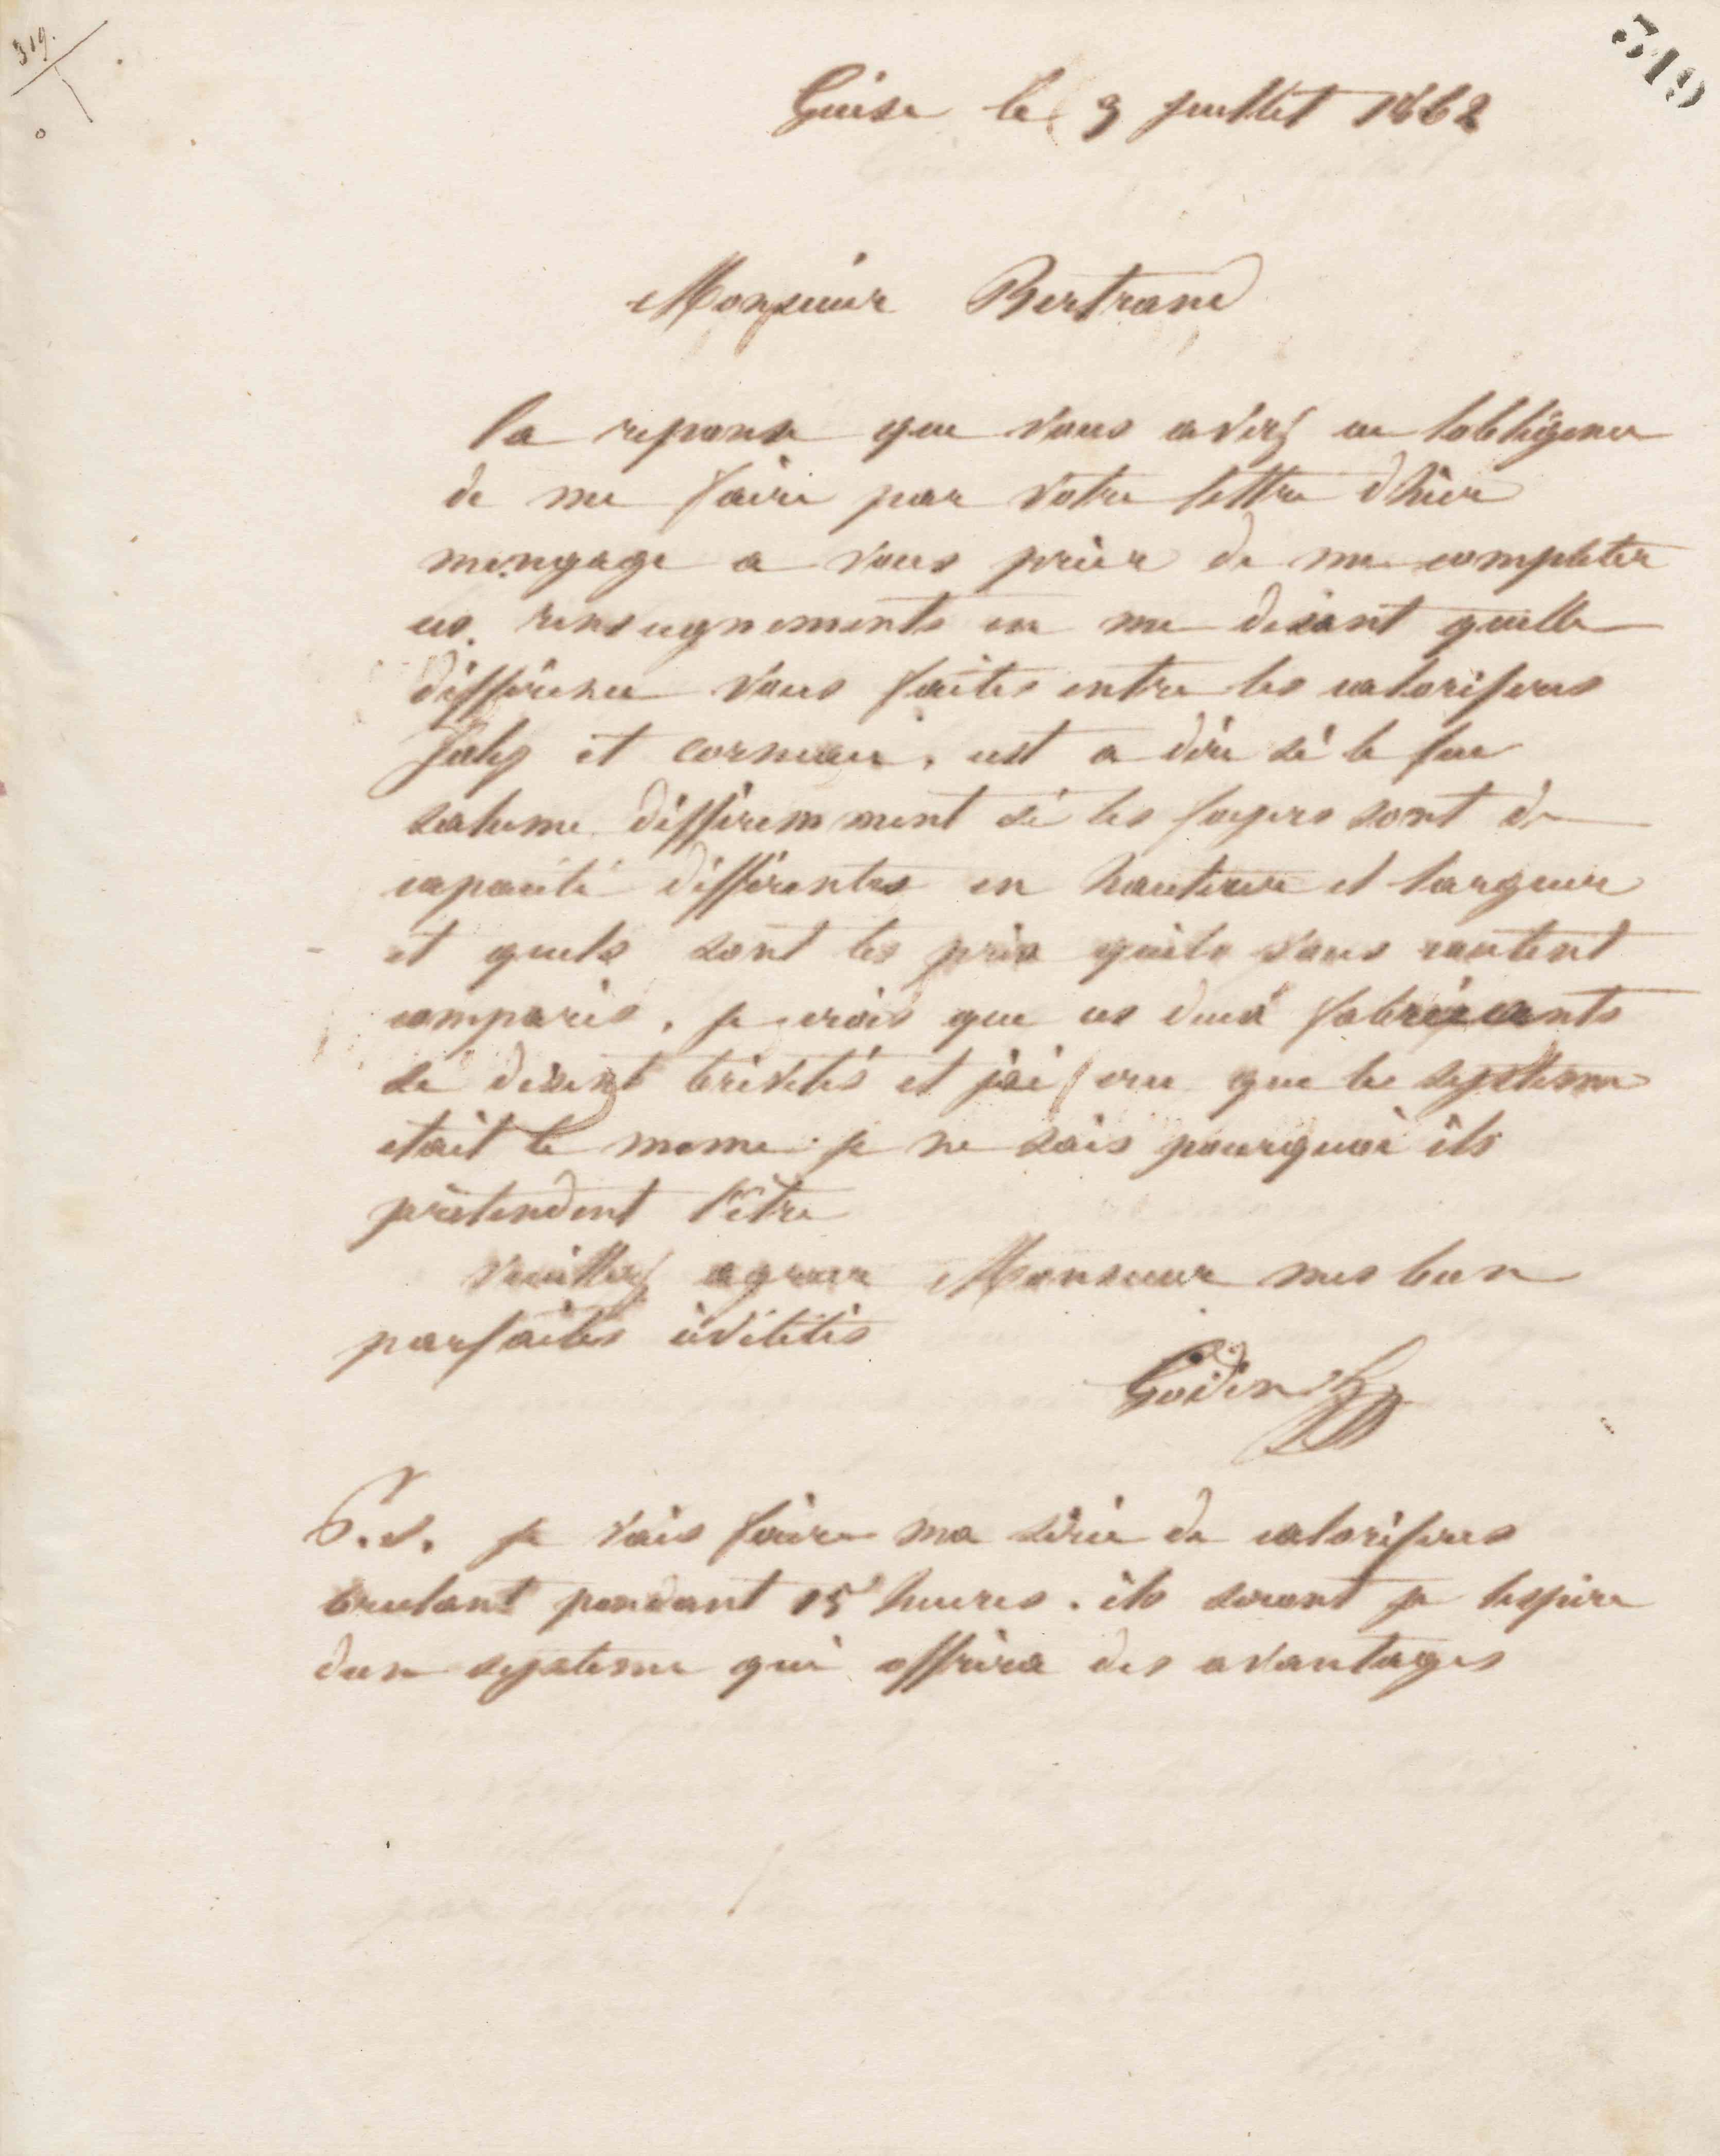 319.
319
Guise le 3 juillet 1862
Monsieur Bertrand
la reponse que vous avez eu lobligence
de me faire par votre lettre dhier
mengage a vous prier de me completer
ces renseignements en me disant quelle
difference vous faites entre les caloriferes
et Corneau, cest a dire si le feu
salume differemment si les foyers sont de
capacité differentes en hauteur et largeur
et quels sont les prix quils vous coutent
comparés. je crois que ces deux fabriquants
se disent brévetés et j'ai cru que le systeme
etait le meme je ne sais pourquoi ils
prétendent l'être
Veuillez agreer Monsieur mes bien
parfaites civilités
Godin
P.S. je vais faire ma série de caloriferes
brulant pendant 15 heures. ils seront je lespère
dun systeme qui offrira des avantages